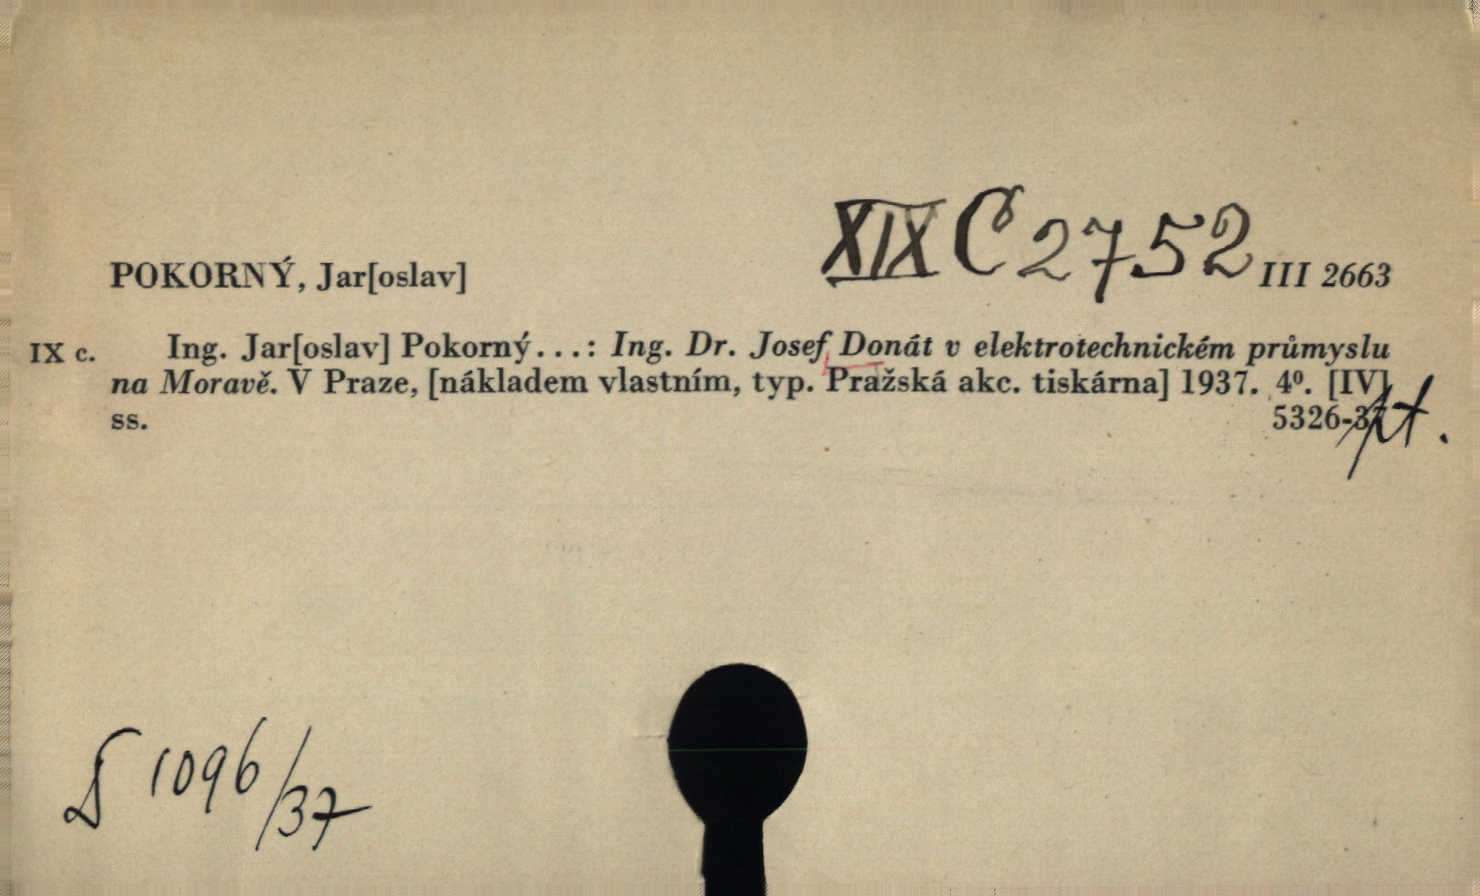 XIX C 2752
POKORNÝ, Jar[oslav] III 2663
IX c. Ing. Jar[oslav] Pokorný...: Ing. Dr. Josef Donát v elektrotechnickém průmyslu
na Moravě. V Praze, [nákladem vlastním, typ. Pražská akc. tiskárna] 1937. 4⁰. [IV]
ss. 5326-37
1096/37